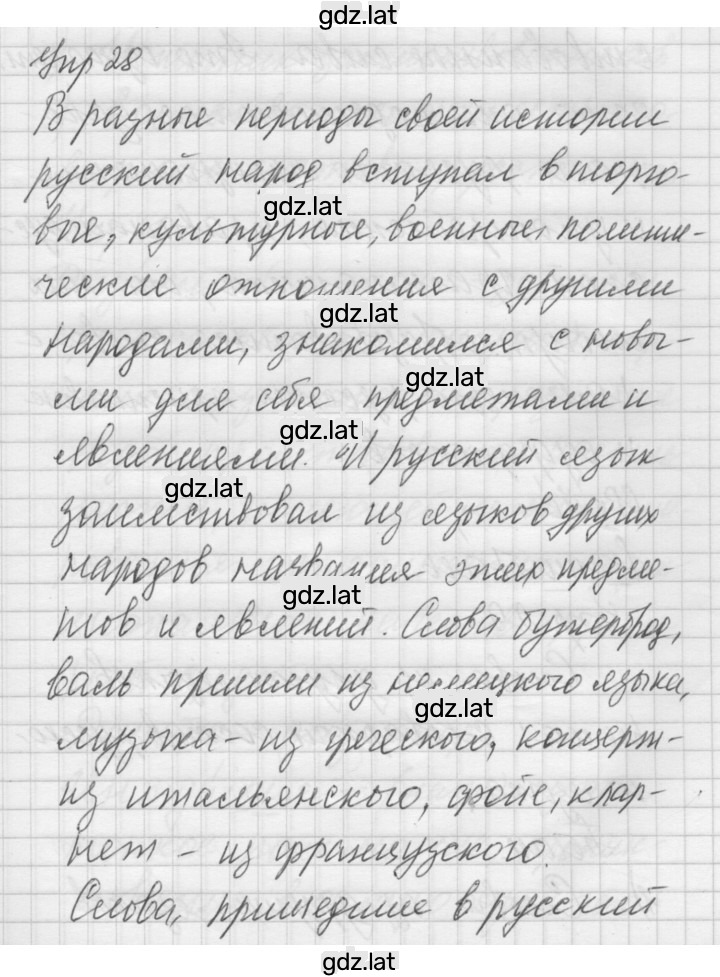 gdz.lat
Упр 28
В разные периоды своей истории
русский народ вступал в торго-
gdz.lat
вые, культурные, военные, полити-
ческие отношения с другими
gdz.lat
народами, знакомился с новы-
gdz.lat
ми для себя предметами и
gdz.lat
явлениями. И русский язык
gdz.lat
заимствовал из языков других
народов названия этих предме-
gdz.lat
тов и явлений. Слова бутерброд,
валь пришли из немецкого языка,
gdz.lat
музыка - из греческого, концерт -
из итальянского, фойе, клар-
нет - из французского.
Слова, пришедшие в русский
gdz.lat